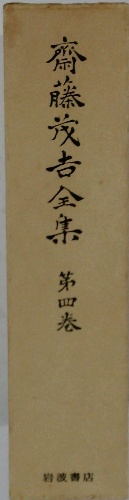 齋藤茂吉全集
第四巻
岩波書店